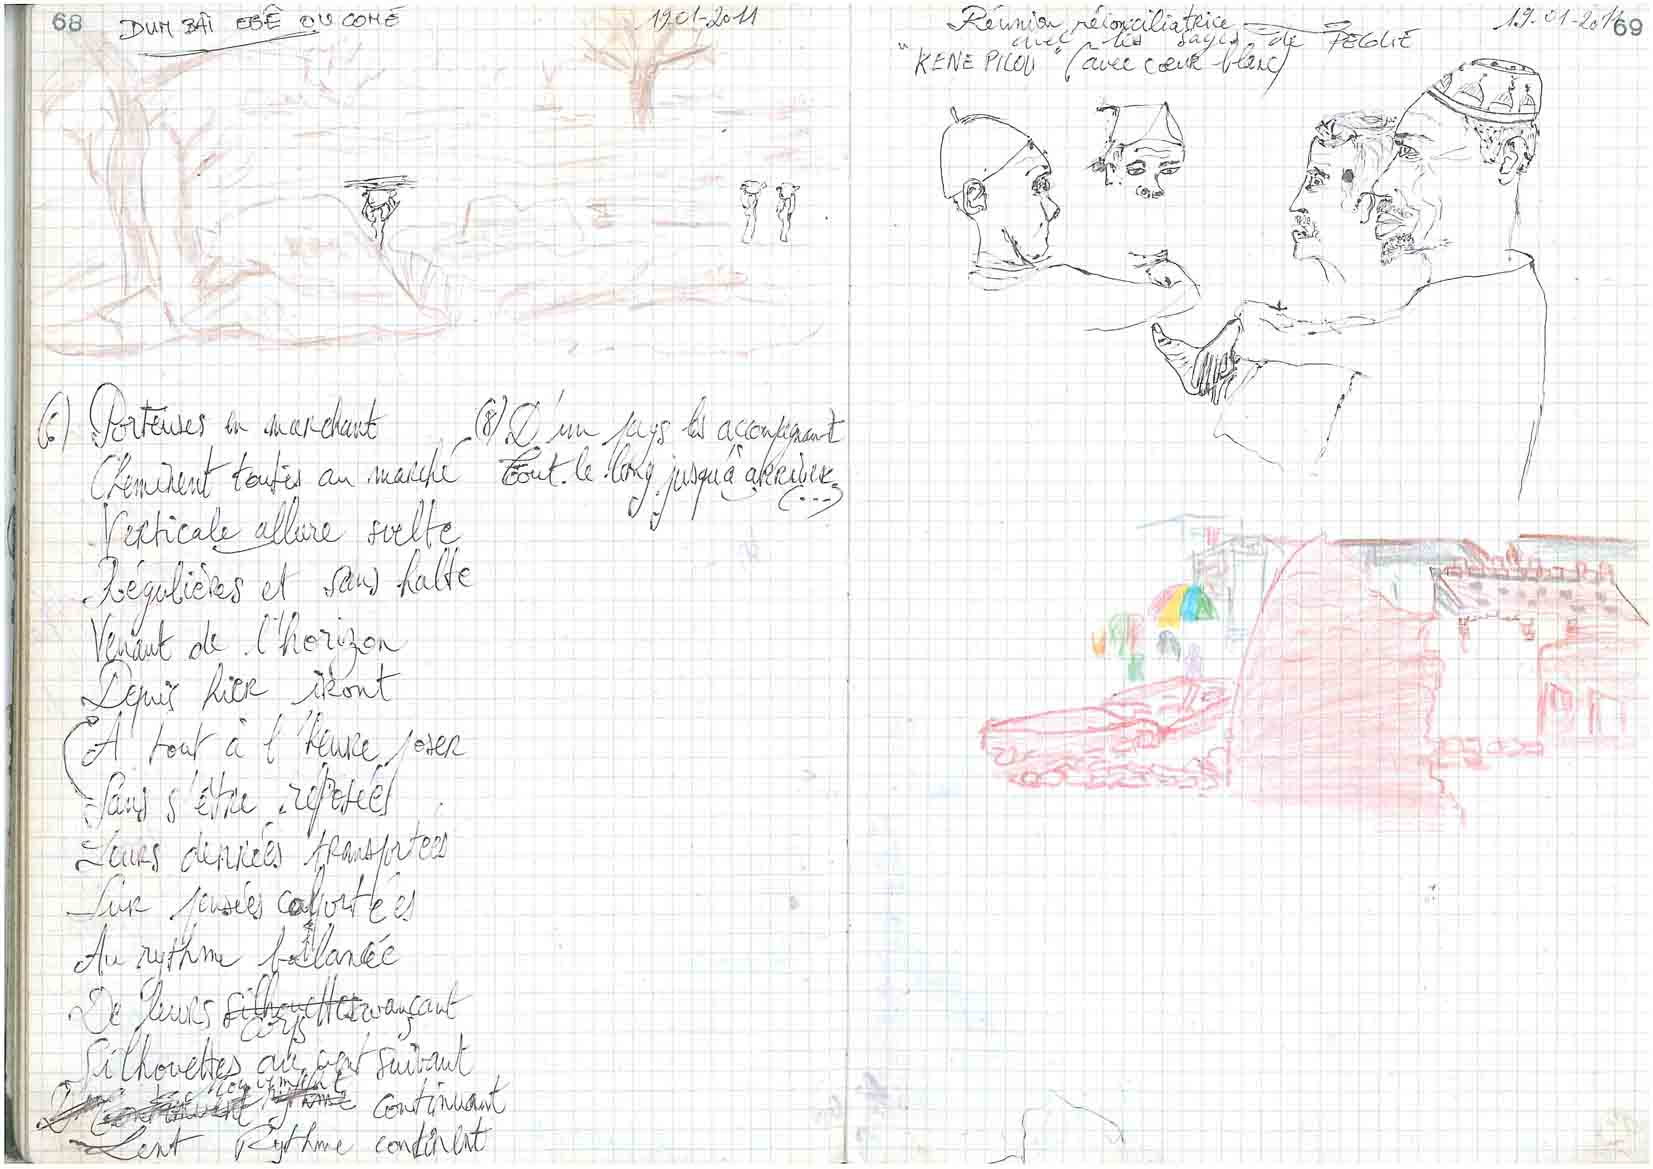 68
DUM BAÏ EBÊ OU COMÉ
19.01-2011
(6) Porteuses en marchant
Cheminent toutes au marché
Verticale allure svelte
Régulières et sans halte
Venant de l'horizon
Depuis hier iront
A tout à l'heure poser
Sans s'être reposées
Leurs denrées transportées
Sur pensées colportées
Au rythme balancée
De leurs silhouettes avançant
corps
Silhouettes au vent suivant
mouvement
continuant
Lent Rythme continent
(8) D'un pays les accompagnant
Tout le long jusqu'à arriver
(...)
Réunion réconciliatrice
19-01-2011
69
avec les sages de PEGUÉ
"KENE PILOU" (avec cœur blanc)